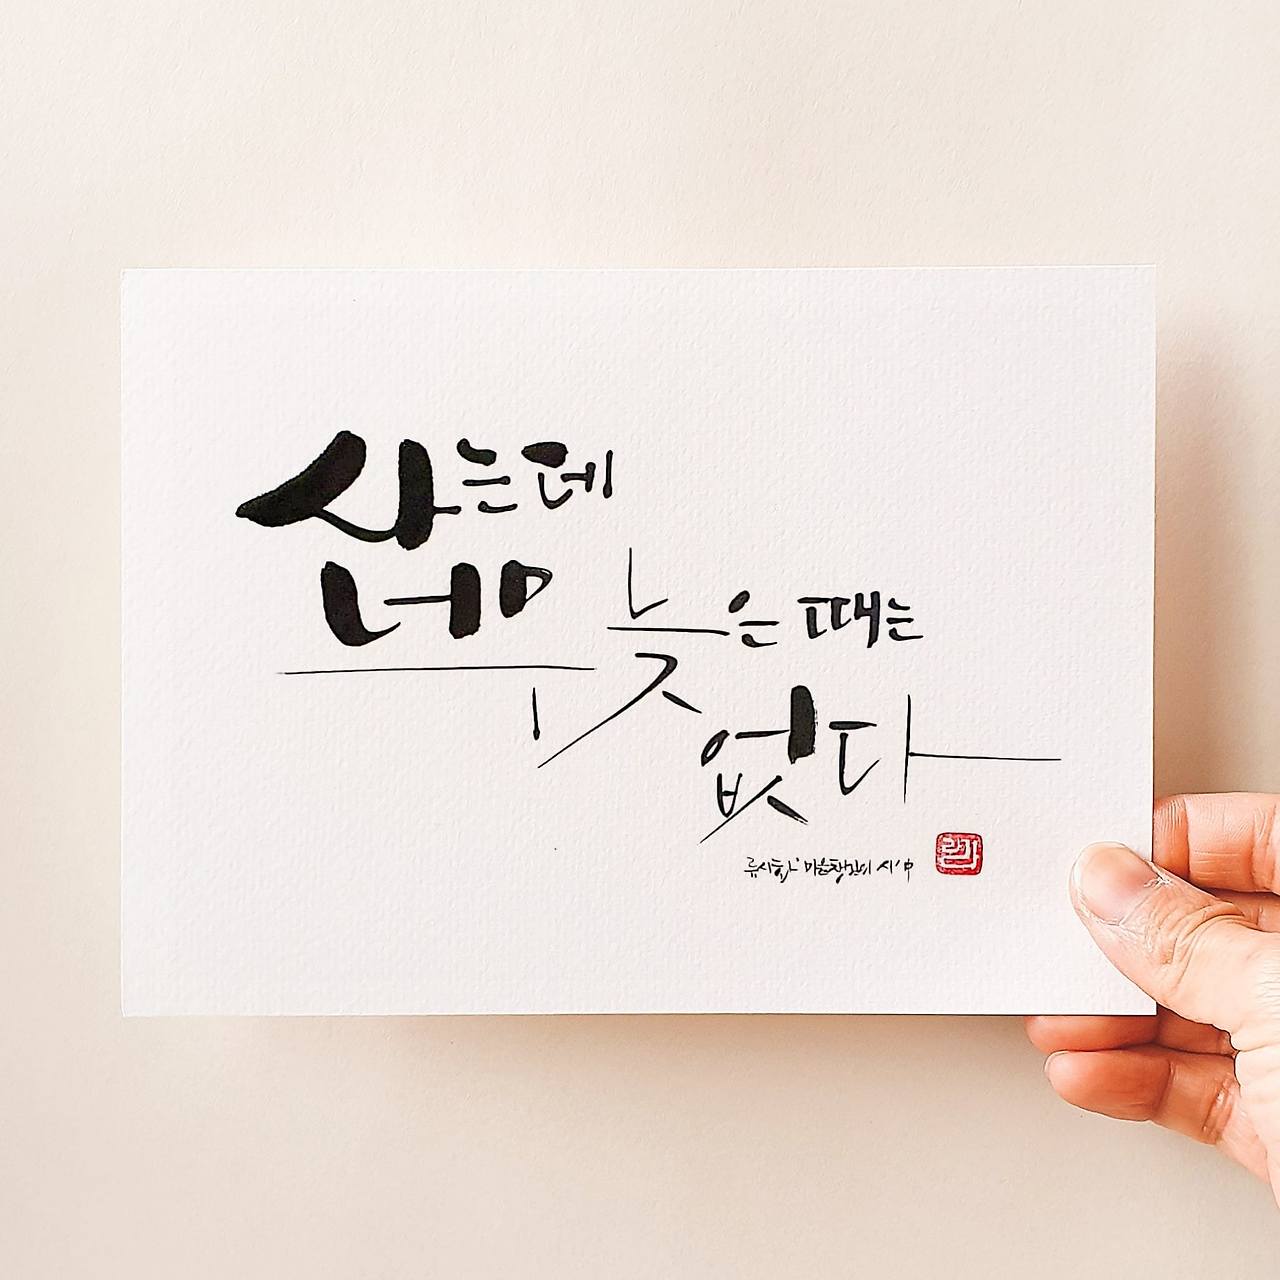 사는데
너무 늦은 때는
없다
류시화 '마음챙김의 시' 中